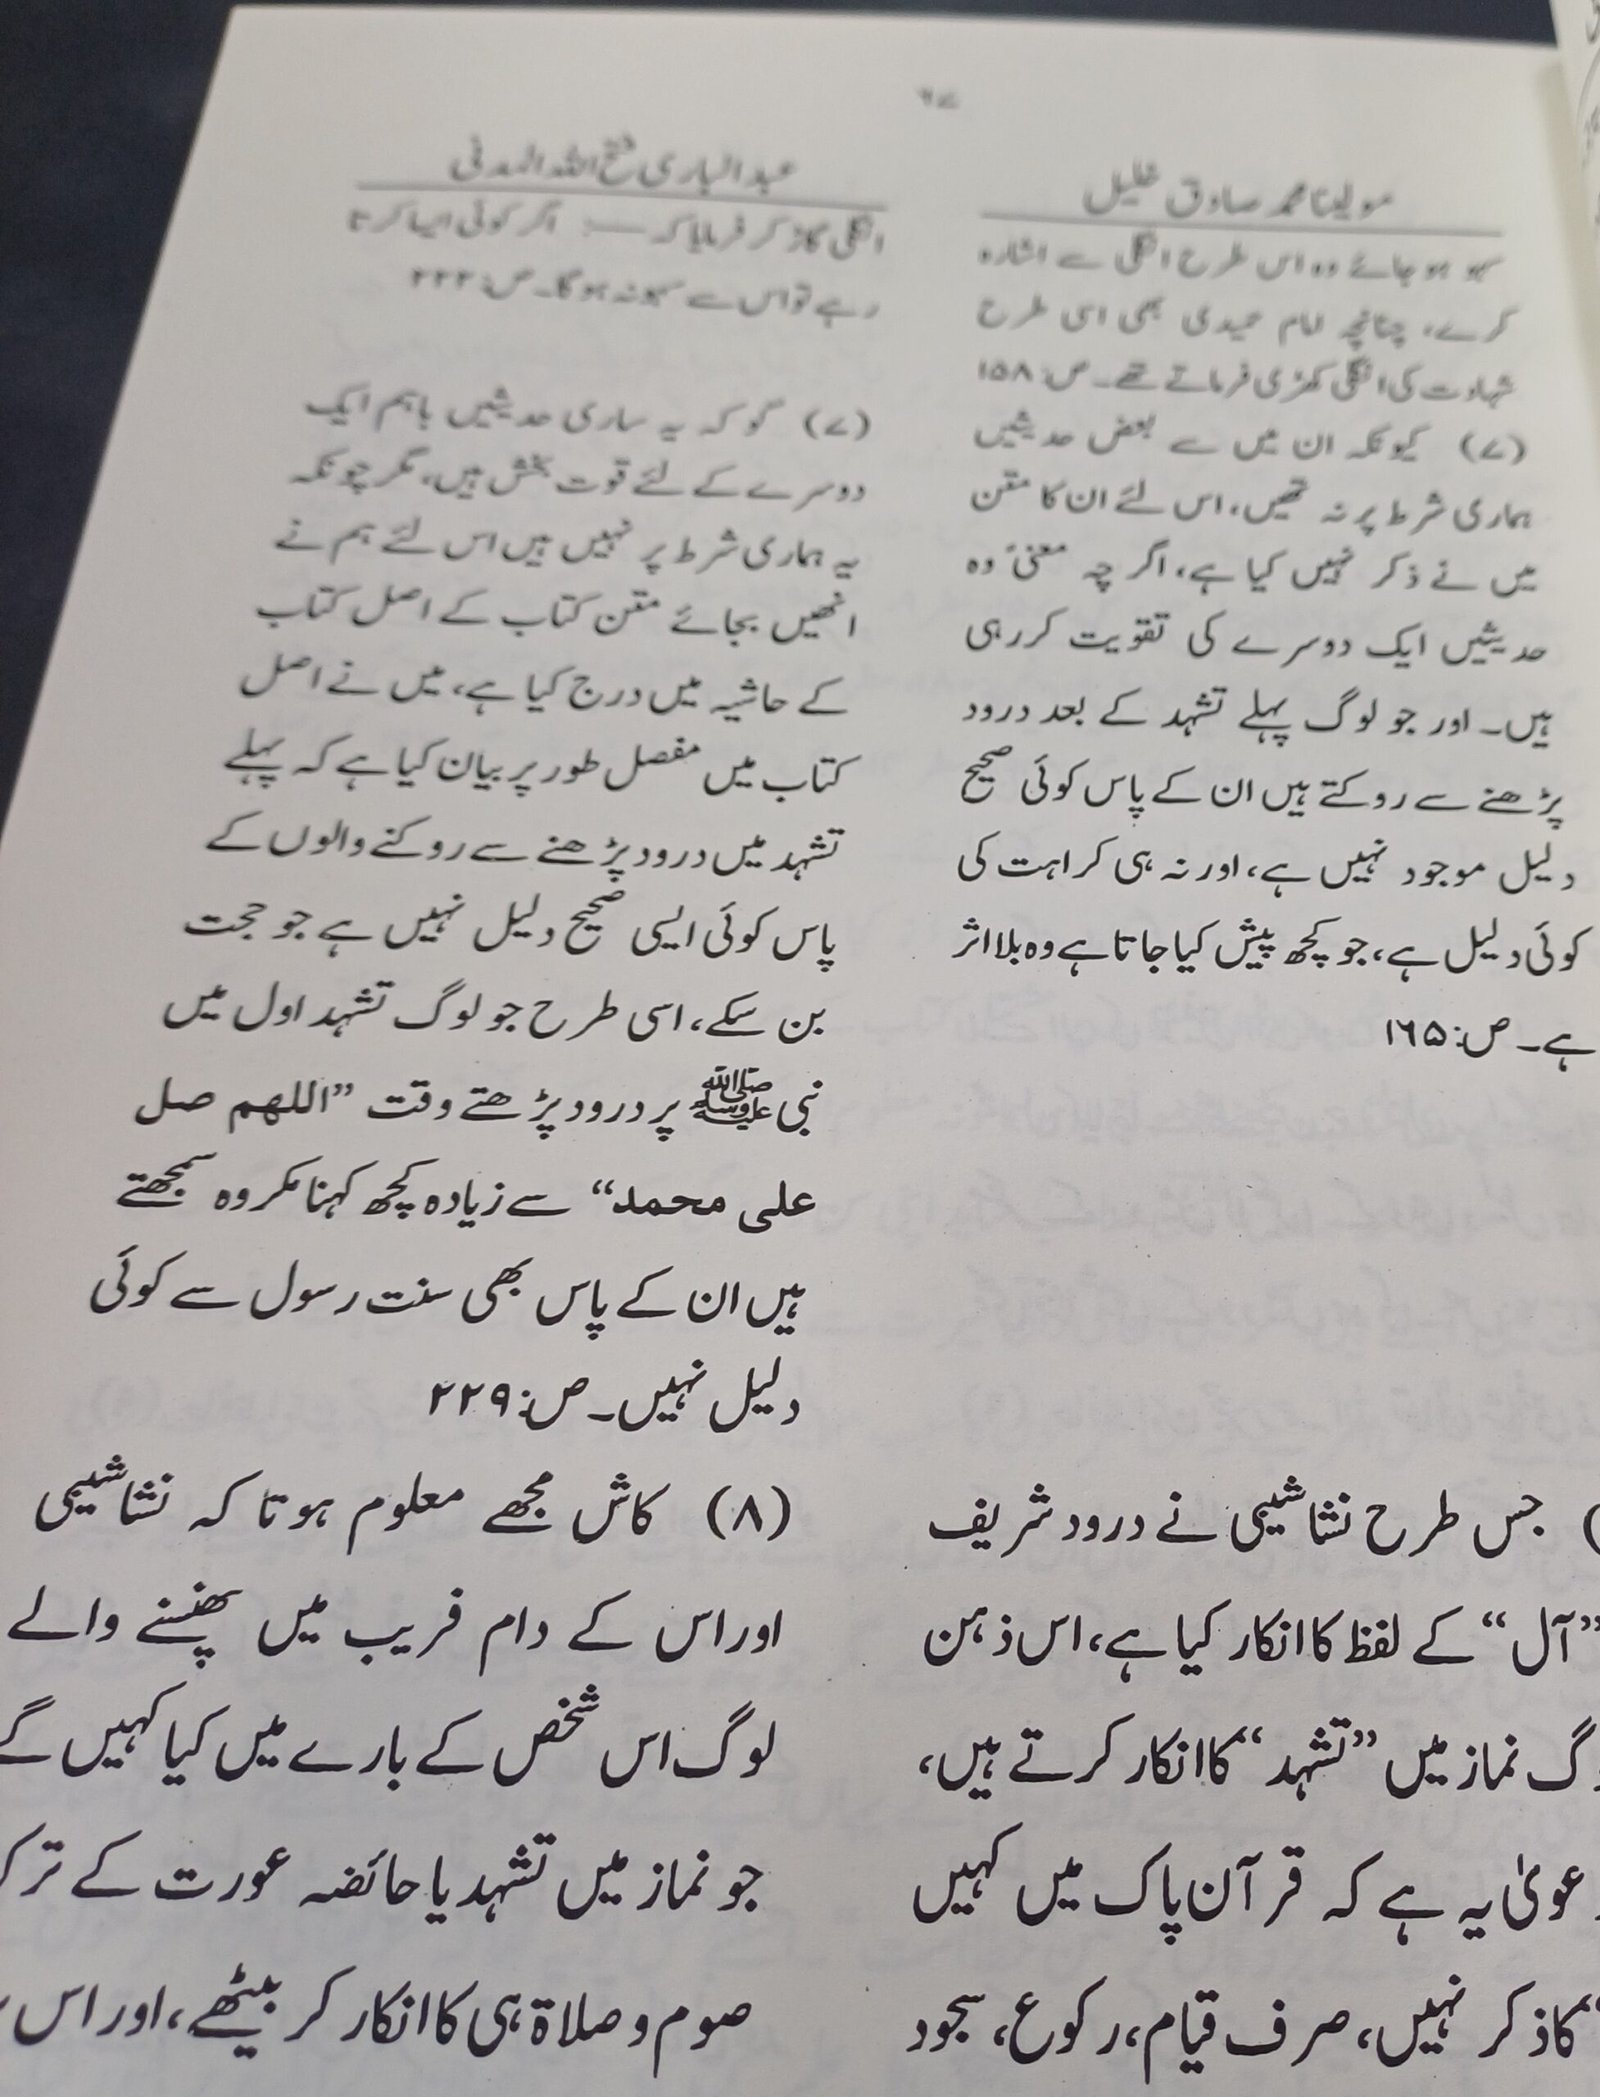 ۶۷
مولینا محمد صادق خلیل
سہو ہو جائے وہ اس طرح انگلی سے اشارہ
کرے، چنانچہ امام حمیدی بھی اسی طرح
شہادت کی انگلی کھڑی فرماتے تھے۔ ص: ۱۵۸
(۷) کیونکہ ان میں سے بعض حدیثیں
ہماری شرط پر نہ تھیں، اس لئے ان کا متن
میں نے ذکر نہیں کیا ہے، اگر چہ معنیً وہ
حدیثیں ایک دوسرے کی تقویت کر رہی
ہیں۔ اور جو لوگ پہلے تشہد کے بعد درود
پڑھنے سے روکتے ہیں ان کے پاس کوئی صحیح
دلیل موجود نہیں ہے، اور نہ ہی کراہت کی
کوئی دلیل ہے، جو کچھ پیش کیا جاتا ہے وہ بلا اثر
ہے۔ ص: ۱۶۵
) جس طرح نشاشیبی نے درود شریف
”آل“ کے لفظ کا انکار کیا ہے، اس ذہن
گ نماز میں ”تشہد“ کا انکار کرتے ہیں،
عویٰ یہ ہے کہ قرآن پاک میں کہیں
“ کا ذکر نہیں، صرف قیام، رکوع، سجود
عبدالباری فتح اللہ المدنی
انگلی گاڑ کر فرمایا کہ —: اگر کوئی ایسا کرتا
رہے تو اس سے سہو نہ ہوگا۔ ص: ۲۲۲
(۷) گو کہ یہ ساری حدیثیں باہم ایک
دوسرے کے لئے قوت بخش ہیں، مگر چونکہ
یہ ہماری شرط پر نہیں ہیں اس لئے ہم نے
انھیں بجائے متن کتاب کے اصل کتاب
کے حاشیہ میں درج کیا ہے، میں نے اصل
کتاب میں مفصل طور پر بیان کیا ہے کہ پہلے
تشہد میں درود پڑھنے سے روکنے والوں کے
پاس کوئی ایسی صحیح دلیل نہیں ہے جو حجت
بن سکے، اسی طرح جو لوگ تشہد اول میں
نبی ﷺ پر درود پڑھتے وقت ”اللهم صل
علی محمد“ سے زیادہ کچھ کہنا مکروہ سمجھتے
ہیں ان کے پاس بھی سنت رسول سے کوئی
دلیل نہیں۔ ص: ۲۲۹
(۸) کاش مجھے معلوم ہوتا کہ نشاشیبی
اور اس کے دام فریب میں پھنسنے والے
لوگ اس شخص کے بارے میں کیا کہیں گے
جو نماز میں تشہد یا حائضہ عورت کے ترک
صوم و صلاۃ ہی کا انکار کر بیٹھے، اور اس